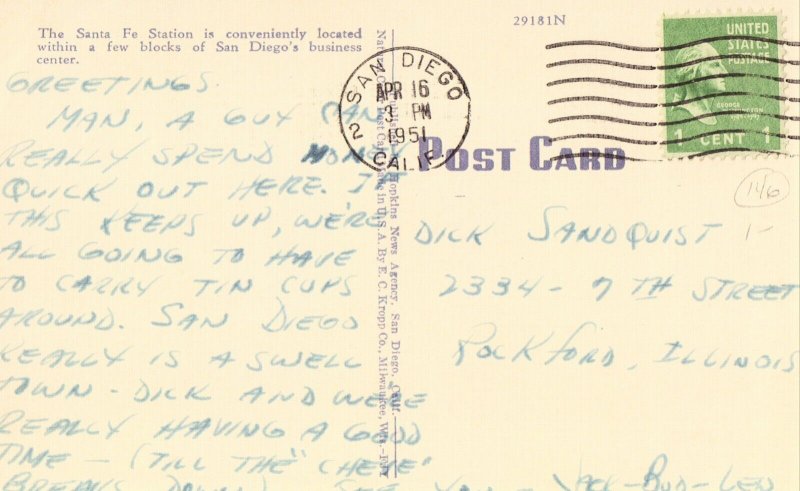 The Santa Fe Station is conveniently located
within a few blocks of San Diego's business
center.
29181N
SAN DIEGO
2
APR 16
3 PM
1951
CALIF.
UNITED
STATES
POSTAGE
1 CENT 1
POST CARD
146
1-
GREETINGS
MAN, A GUY CAN
REALLY SPEND MONEY
QUICK OUT HERE. IF
THIS KEEPS UP, WE'RE
ALL GOING TO HAVE
TO CARRY TIN CUPS
AROUND. SAN DIEGO
REALLY IS A SWELL
TOWN - DICK AND WE'RE
REALLY HAVING A GOOD
TIME - (TILL THE "CHEVE"
BREAKS DOWN) SEE YOU - JACK-BUD-LEN
Hopkins News Agency, San Diego, Calif.
Made in U.S.A. By E. C. Kropp Co., Milwaukee, Wis.
DICK SANDQUIST
2334 - 7TH STREET
ROCKFORD, ILLINOIS